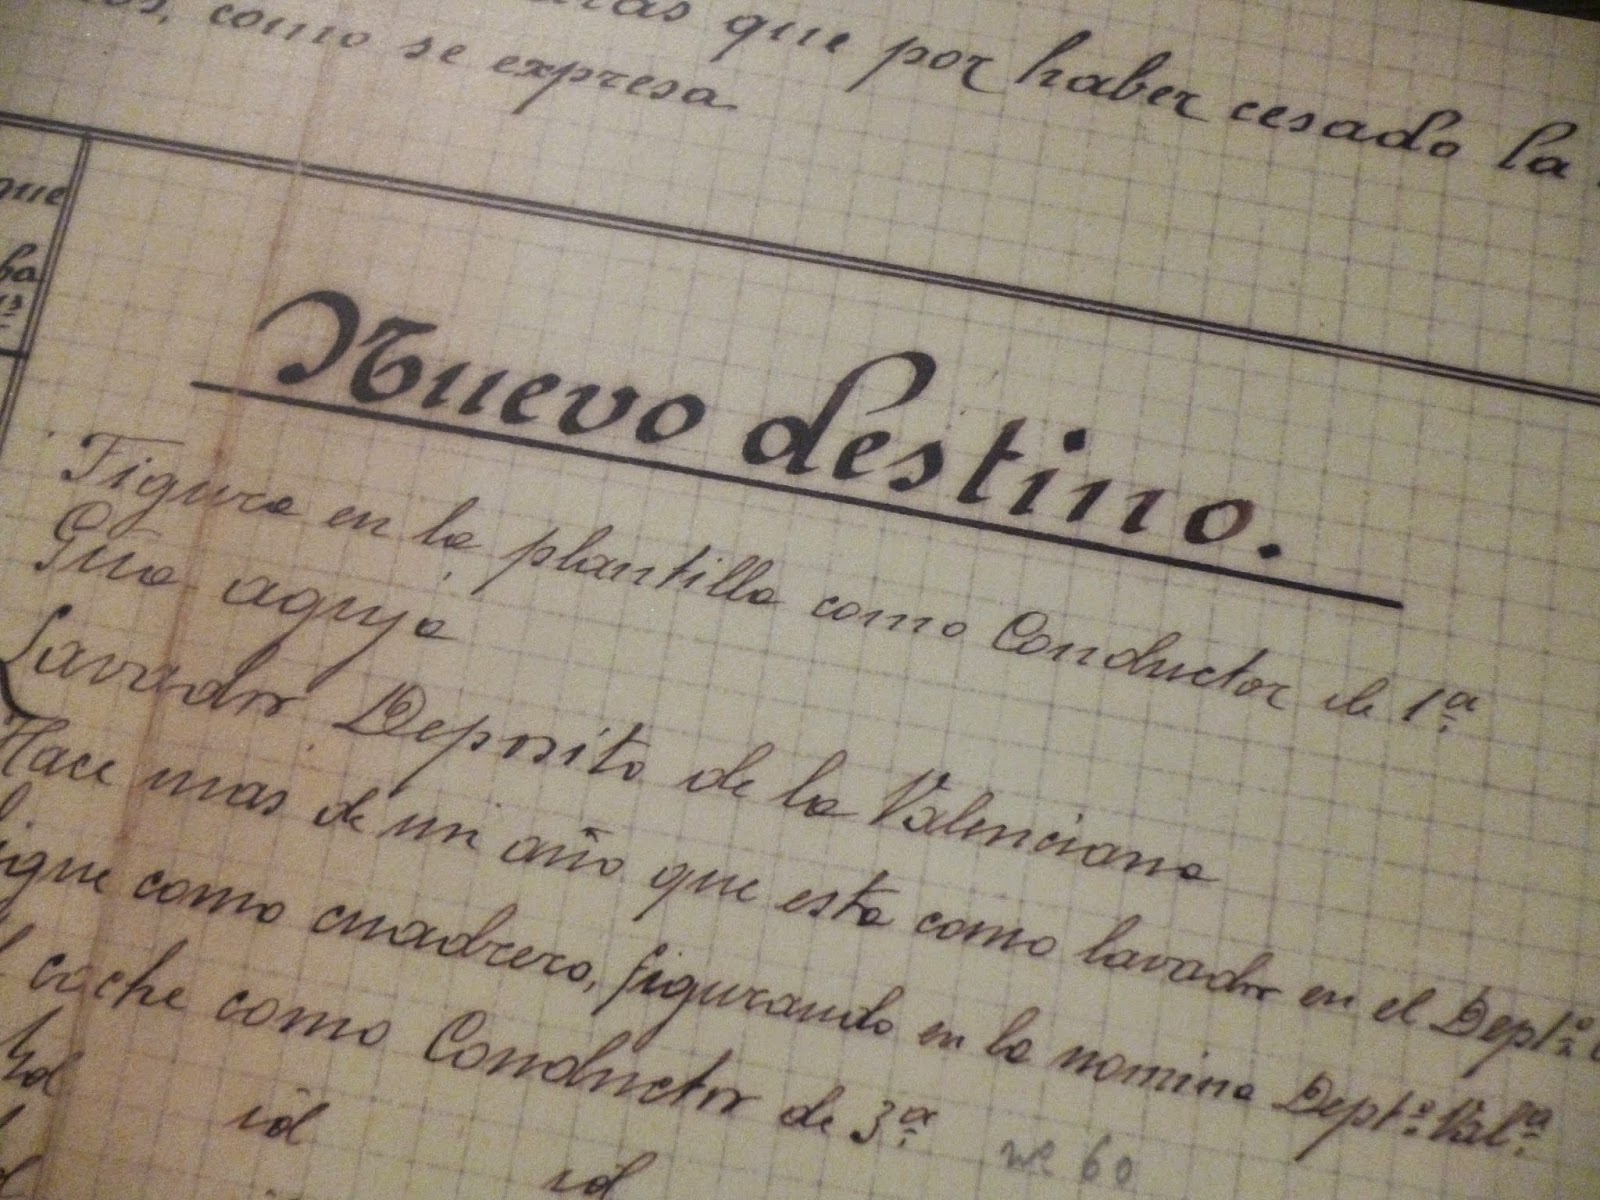 que por haber cesado la
como se expresa
que
Nuevo destino.
Figura en la plantilla como Conductor de 1ª
Guia aguja
Lavador Deposito de la Valenciana
Hace mas de un año que esta como lavador en el Deptº
como cuadrero, figurando en la nomina Deptº Valª
coche como Conductor de 3ª
id id
id
60